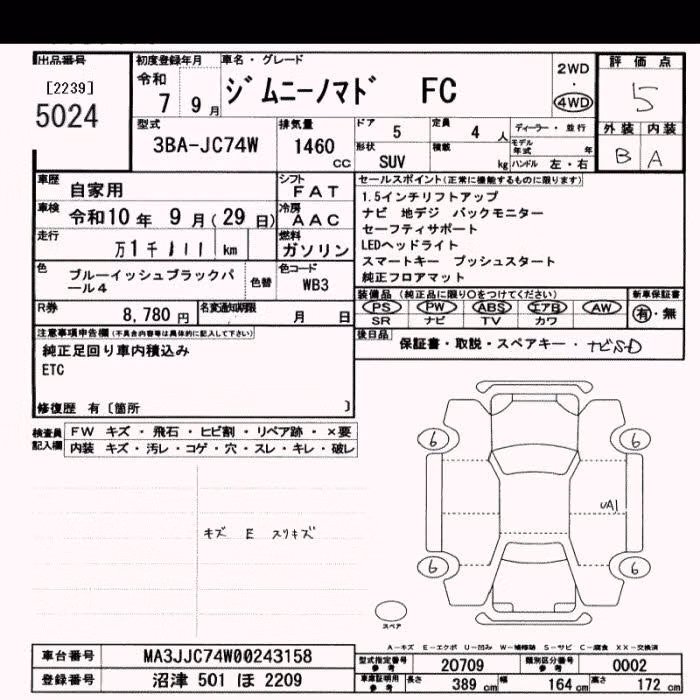 出品番号
[2239]
5024
初度登録年月
令和
7 9月
車名・グレード
ジムニーノマド FC
2WD
・
4WD
評価点
5
外装 内装
B A
型式
3BA-JC74W
排気量
1460 cc
ドア 5
定員 4 人
ディーラー・並行
形状 SUV
積載 kg
モデル年式 年
ハンドル 左・右
車歴 自家用
シフト FAT
車検 令和10年 9月(29日)
冷房 AAC
走行 万1千111 km
燃料 ガソリン
色 ブルーイッシュブラックパール4
色替
色コード WB3
R券 8,780円
名変通知期限 月 日
セールスポイント(正常に機能するものに限ります)
1.5インチリフトアップ
ナビ 地デジ バックモニター
セーフティサポート
LEDヘッドライト
スマートキー プッシュスタート
純正フロアマット
装備品(純正品に限り○をつけてください)
PS PW ABS エアB AW
SR ナビ TV カワ
新車保証書
有・無
後日品
保証書・取説・スペアキー・ナビSD
注意事項申告欄(不具合内容等は具体的に記入して下さい)
純正足回り車内積込み
ETC
修復歴 有〔箇所 〕
検査員記入欄
FW キズ・飛石・ヒビ割・リペア跡・×要
内装 キズ・汚レ・コゲ・穴・スレ・キレ・破レ
キズ E スリキズ
6
6
UA1
6
6
スペア
A-キズ E-エクボ U-凹み W-補修跡 S-サビ C-腐食 XX-交換済
車台番号 MA3JJC74W00243158
登録番号 沼津 501 ほ 2209
型式指定番号参考 20709
類別区分番号参考 0002
車庫証明用参考 長さ 389cm 幅 164cm 高さ 172cm